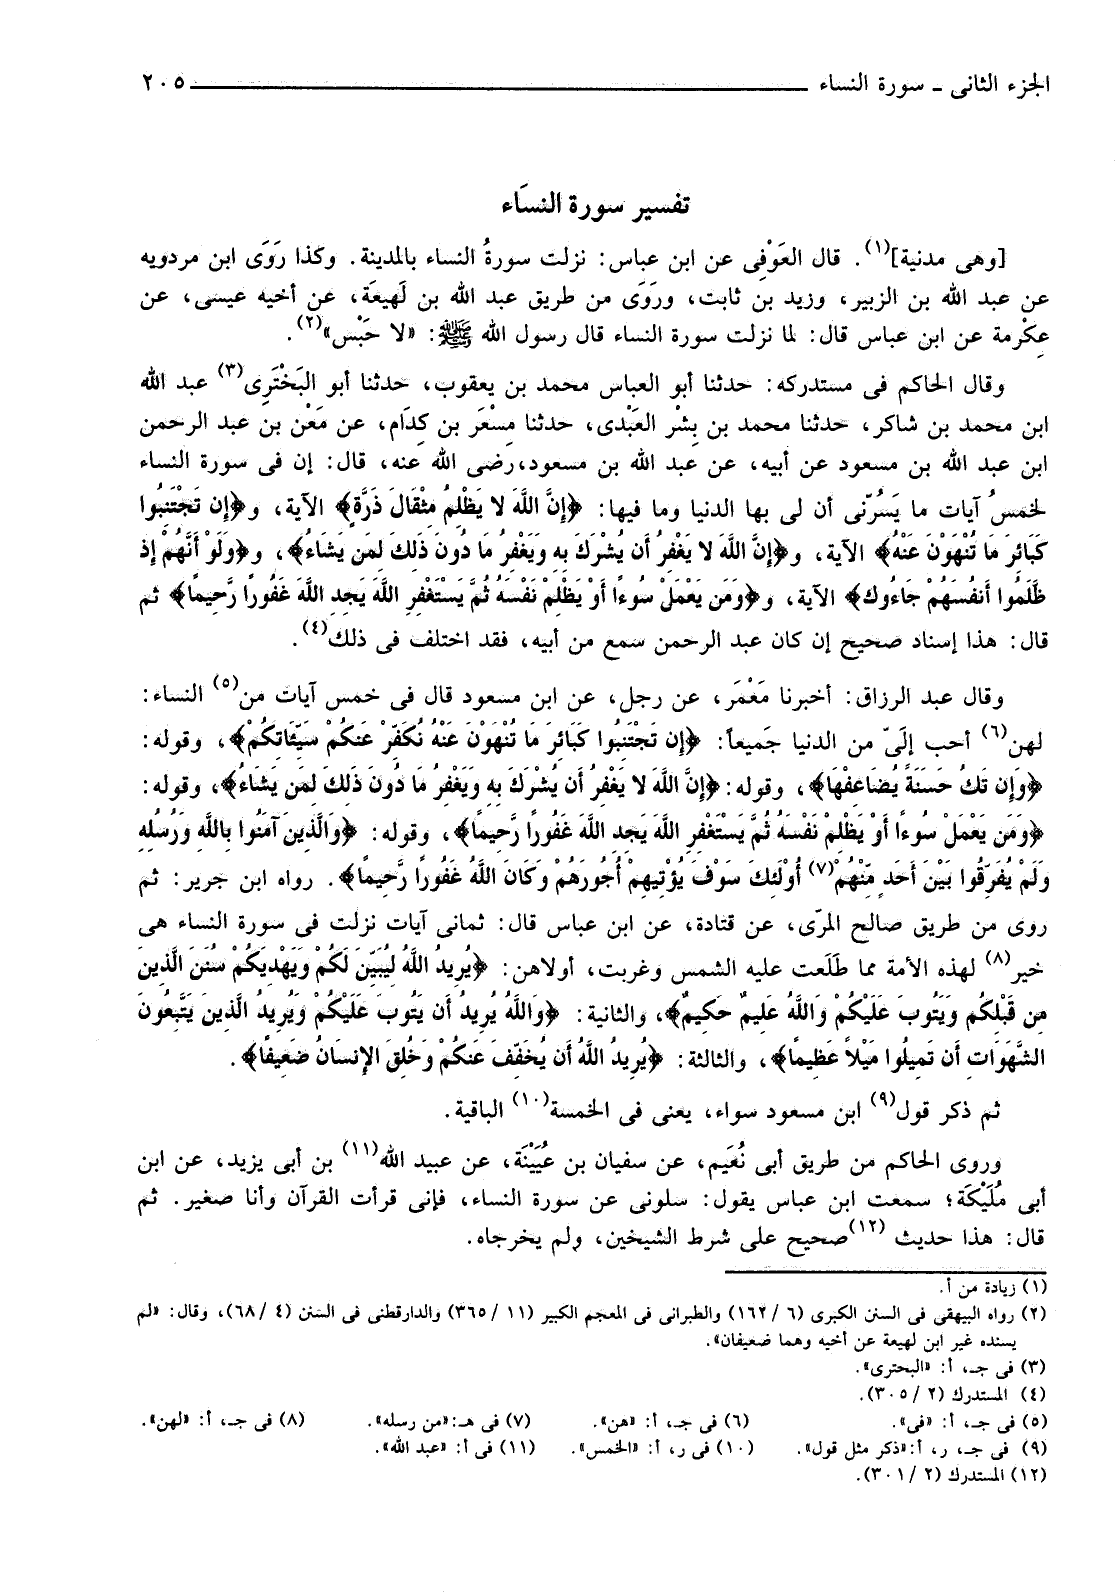 الجزء الثانى ـ سورة النساء ـــــــــــــــــــــــــــــــــــــ ٢٠٥
تفسير سورة النسَاء
[وهى مدنية](١). قال العَوْفِى عن ابن عباس: نزلت سورةُ النساء بالمدينة. وكذا رَوَى ابن مردويه
عن عبد الله بن الزبير، وزيد بن ثابت، ورَوَى من طريق عبد الله بن لَهِيعَة، عن أخيه عيسى، عن
عِكْرمة عن ابن عباس قال: لما نزلت سورة النساء قال رسول الله ﷺ: «لا حَبْس»(٢).
وقال الحاكم فى مستدركه: حدثنا أبو العباس محمد بن يعقوب، حدثنا أبو البَخْتَرِى(٣) عبد الله
ابن محمد بن شاكر، حدثنا محمد بن بِشْر العَبْدى، حدثنا مِسْعَر بن كِدَام، عن مَعْن بن عبد الرحمن
ابن عبد الله بن مسعود عن أبيه، عن عبد الله بن مسعود،رضى الله عنه، قال: إن فى سورة النساء
لخمسُ آيات ما يَسُرّنى أن لى بها الدنيا وما فيها: ﴿إِنَّ اللَّهَ لا يَظْلِمُ مِثْقَالَ ذَرَّةٍ﴾ الآية، و﴿إِن تَجْتَنِبُوا
كَبَائِرَ مَا تُنْهَوْنَ عَنْهُ﴾ الآية، و﴿إِنَّ اللَّهَ لا يَغْفِرُ أَن يُشْرَكَ بِهِ وَيَغْفِرُ مَا دُونَ ذَلِكَ لِمَن يَشَاءُ﴾، و﴿وَلَوْ أَنَّهُمْ إِذ
ظَّلَمُوا أَنفُسَهُمْ جَاءُوكَ﴾ الآية، و﴿وَمَن يَعْمَلْ سُوءًا أَوْ يَظْلِمْ نَفْسَهُ ثُمَّ يَسْتَغْفِرِ اللَّهَ يَجِدِ اللَّهَ غَفُورًا رَّحِيمًا﴾ ثم
قال: هذا إسناد صحيح إن كان عبد الرحمن سمع من أبيه، فقد اختلف فى ذلك(٤).
وقال عبد الرزاق: أخبرنا مَعْمَر، عن رجل، عن ابن مسعود قال فى خمس آيات من(٥) النساء:
لهن(٦) أحب إلَىّ من الدنيا جَميعاً: ﴿إِن تَجْتَنِبُوا كَبَائِرَ مَا تُنْهَوْنَ عَنْهُ نُكَفِّرْ عَنكُمْ سَيِّئَاتِكُمْ﴾، وقوله:
﴿وَإِن تَكُ حَسَنَةً يُضَاعِفْهَا﴾، وقوله:﴿إِنَّ اللَّهَ لا يَغْفِرُ أَن يُشْرَكَ بِهِ وَيَغْفِرُ مَا دُونَ ذَلِكَ لِمَن يَشَاءُ﴾، وقوله:
﴿وَمَن يَعْمَلْ سُوءًا أَوْ يَظْلِمْ نَفْسَهُ ثُمَّ يَسْتَغْفِرِ اللَّهَ يَجِدِ اللَّهَ غَفُورًا رَّحِيمًا﴾، وقوله: ﴿وَالَّذِينَ آمَنُوا بِاللَّهِ وَرُسُلِهِ
وَلَمْ يُفَرِّقُوا بَيْنَ أَحَدٍ مِّنْهُمْ(٧) أُوْلَئِكَ سَوْفَ يُؤْتِيهِمْ أُجُورَهُمْ وَكَانَ اللَّهُ غَفُورًا رَّحِيمًا﴾. رواه ابن جرير: ثم
روى من طريق صالح المرّى، عن قتادة، عن ابن عباس قال: ثمانى آيات نزلت فى سورة النساء هى
خير(٨) لهذه الأمة مما طَلَعت عليه الشمس وغربت، أولاهن: ﴿يُرِيدُ اللَّهُ لِيُبَيِّنَ لَكُمْ وَيَهْدِيَكُمْ سُنَنَ الَّذِينَ
مِن قَبْلِكُمْ وَيَتُوبَ عَلَيْكُمْ وَاللَّهُ عَلِيمٌ حَكِيمٌ﴾، والثانية: ﴿وَاللَّهُ يُرِيدُ أَن يَتُوبَ عَلَيْكُمْ وَيُرِيدُ الَّذِينَ يَتَّبِعُونَ
الشَّهَوَاتِ أَن تَمِيلُوا مَيْلاً عَظِيمًا﴾، والثالثة: ﴿يُرِيدُ اللَّهُ أَن يُخَفِّفَ عَنكُمْ وَخُلِقَ الإِنسَانُ ضَعِيفًا﴾.
ثم ذكر قول(٩) ابن مسعود سواء، يعنى فى الخمسة(١٠) الباقية.
وروى الحاكم من طريق أبى نُعَيم، عن سفيان بن عُيَيْنَة، عن عبيد الله(١١) بن أبى يزيد، عن ابن
أبى مُلَيْكَة؛ سمعت ابن عباس يقول: سلونى عن سورة النساء، فإنى قرأت القرآن وأنا صغير. ثم
قال: هذا حديث (١٢)صحيح على شرط الشيخين، ولم يخرجاه.
(١) زيادة من أ.
(٢) رواه البيهقى فى السنن الكبرى (٦ /١٦٢) والطبرانى فى المعجم الكبير (١١ /٣٦٥) والدارقطنى فى السنن (٤ /٦٨)، وقال: «لم
يسنده غير ابن لهيعة عن أخيه وهما ضعيفان».
(٣) فى جـ، أ: «البحترى».
(٤) المستدرك (٢ /٣٠٥).
(٥) فى جـ، أ: «فى». (٦) فى جـ، أ: «هن». (٧) فى هـ:«من رسله». (٨) فى جـ، أ: «لهن».
(٩) فى جـ، ر، أ:«ذكر مثل قول». (١٠) فى ر، أ: «الخمس». (١١) فى أ: «عبد الله».
(١٢) المستدرك (٢ /٣٠١).